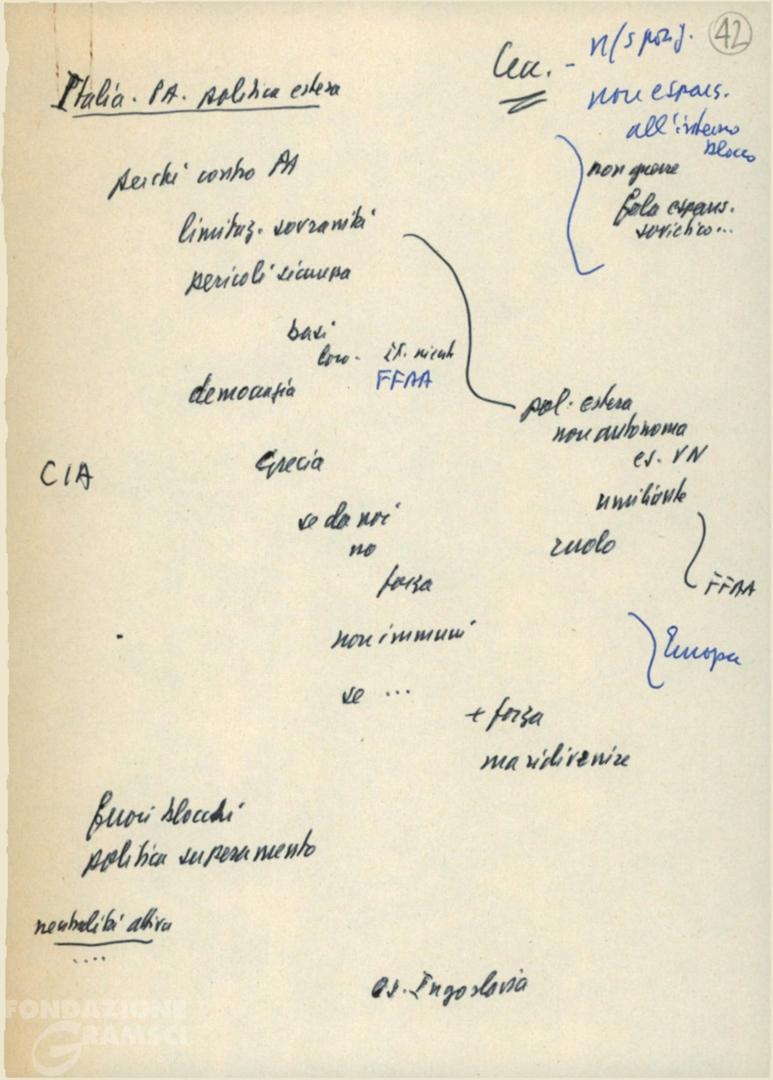 42
Italia. PA. politica estera
Cec. - n/s posiz.
non espans.
all'interno
blocco
non guerre
fola espans.
sovietico...
perché contro PA
limitaz. sovranità
pericoli sicurezza
basi
loro - it. niente
FFAA
democrazia
pol. estera
non autonoma
es. VN
umiliante
ruolo
FFAA
Europa
CIA
Grecia
se da noi
no
forza
non immuni
se ...
+ forza
ma ridivenire
fuori blocchi
politica superamento
neutralità attiva
....
es. Iugoslavia
FONDAZIONE
GRAMSCI